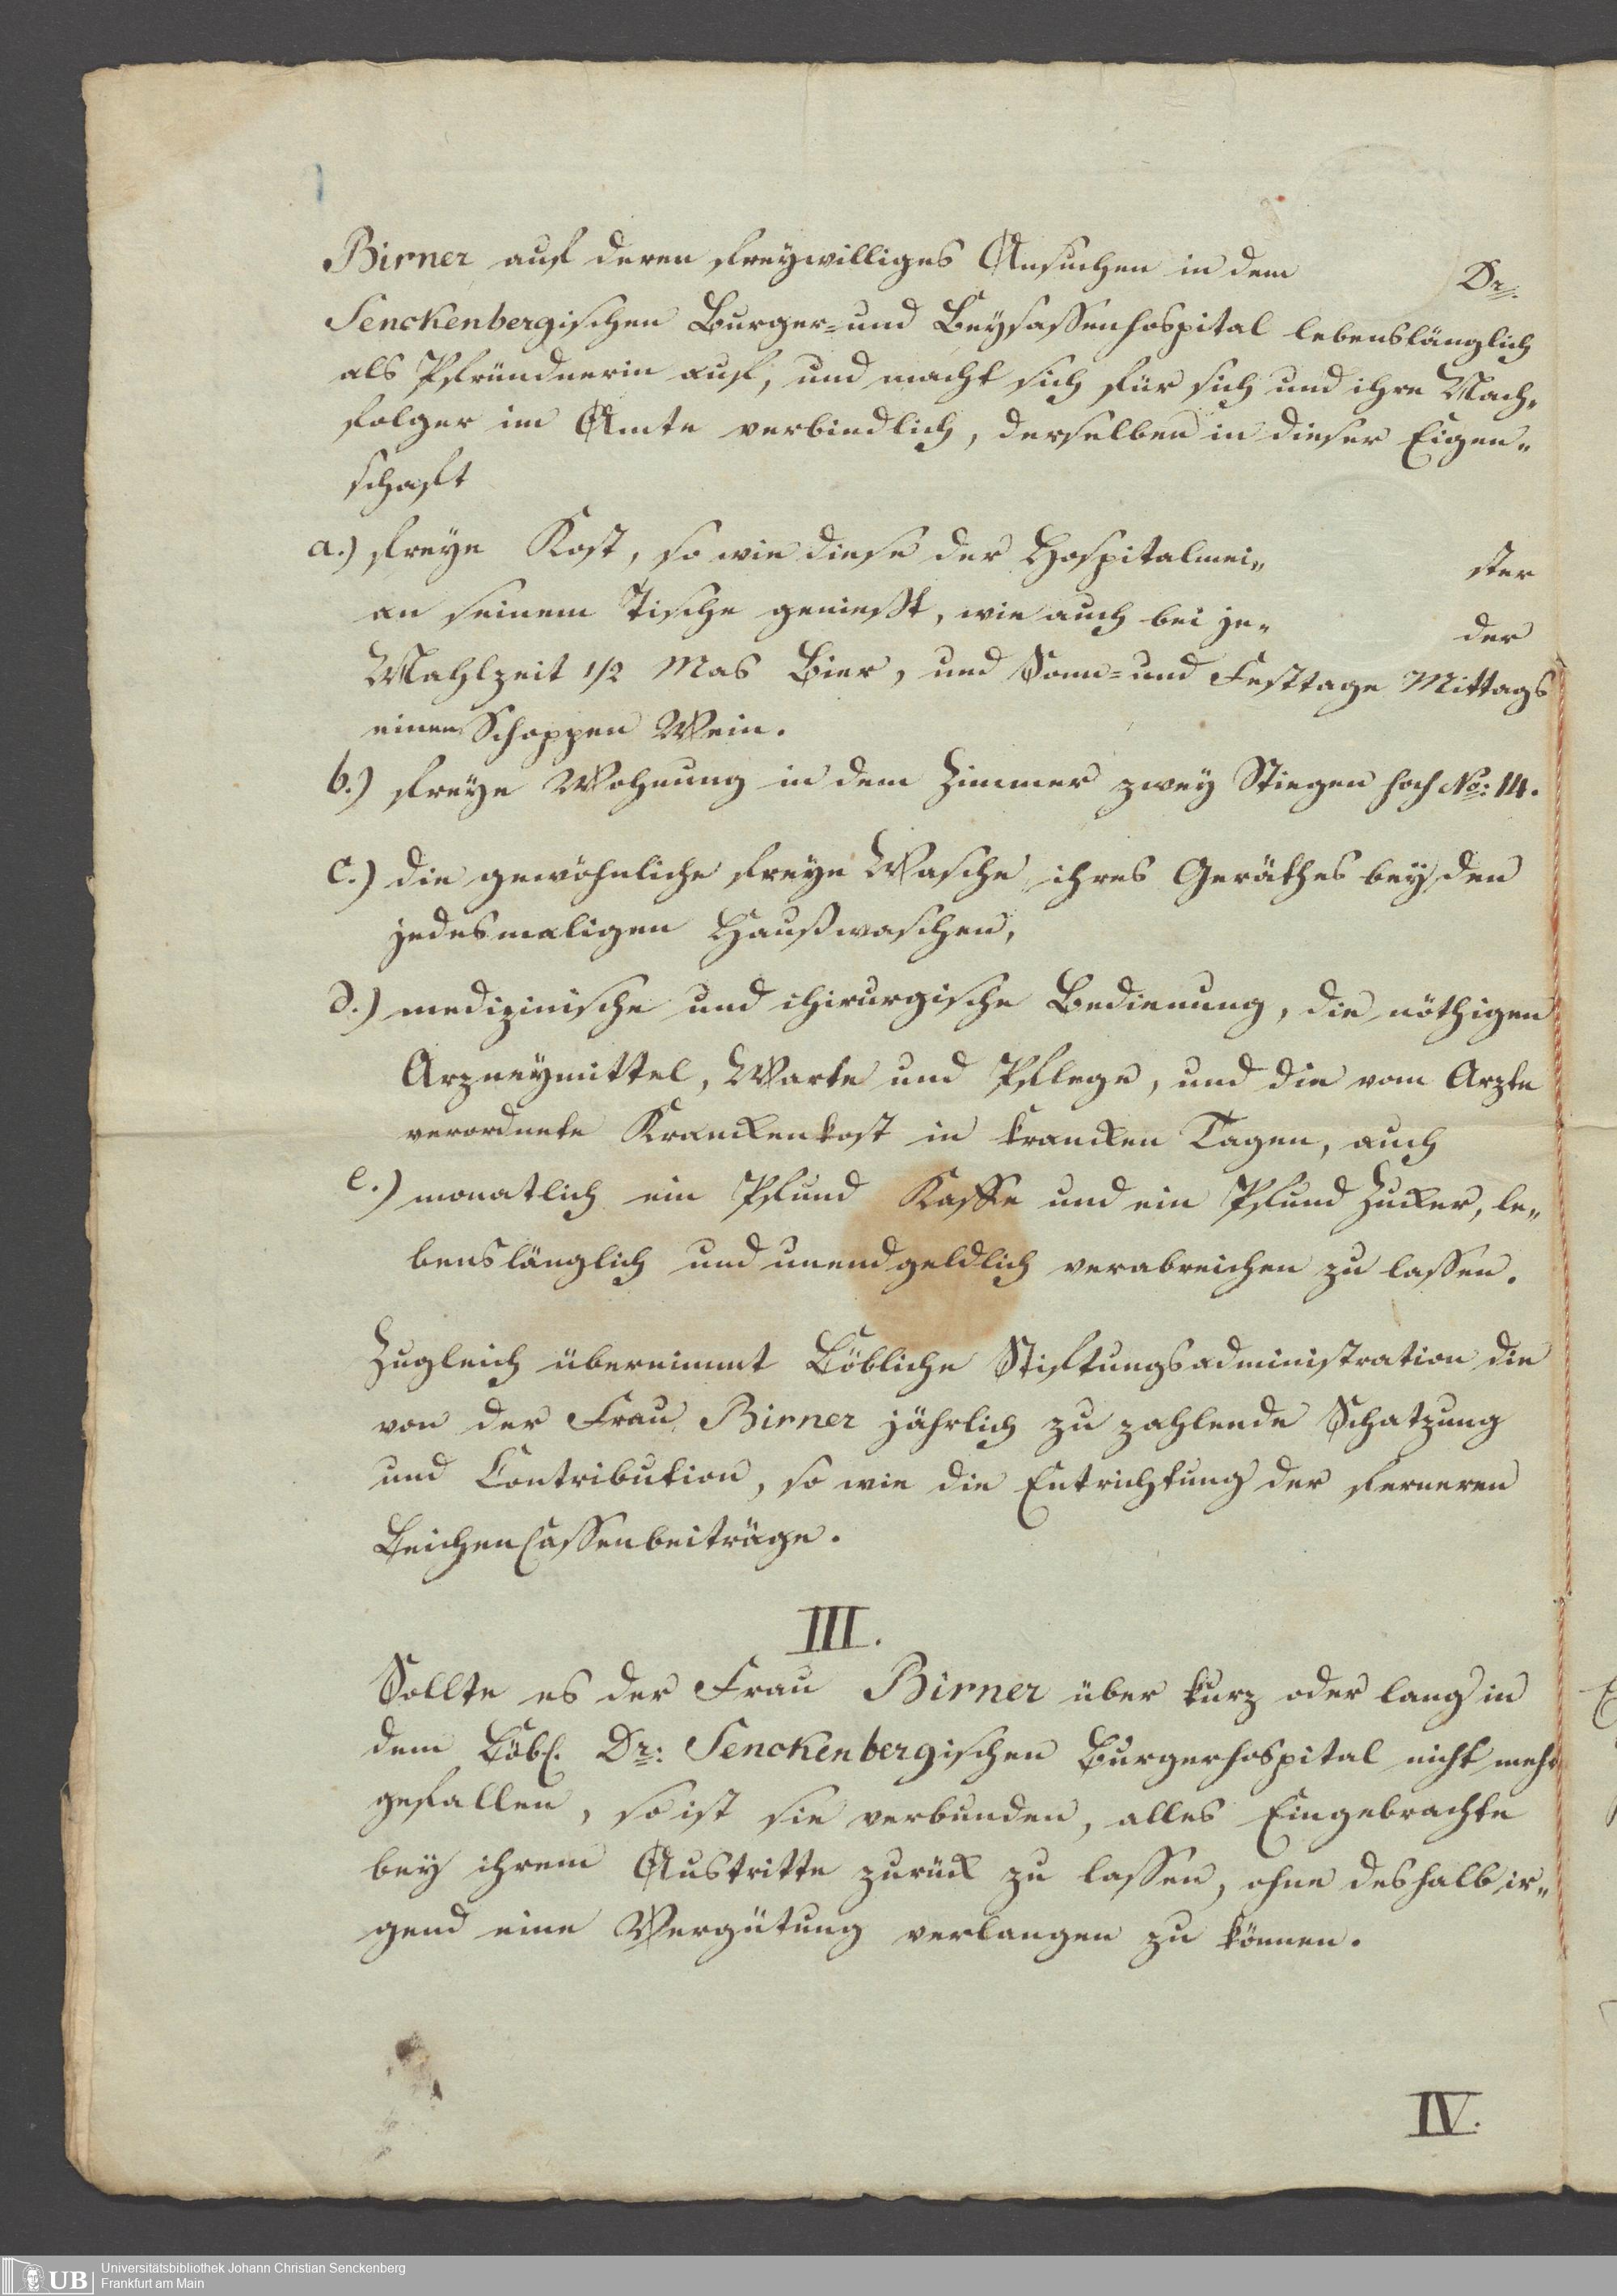 Birner auf deren freywilliges Ansuchen in dem Dr.
Senckenbergischen Burger- und Beysassenhospital lebenslänglich
als Pfründnerin auf, und macht sich für sich und ihre Nach„
folger im Amte verbindlich, derselben in dieser Eigen„
schaft
a.) freye Kost, so wie diese der Hospitalmei„ ster
an seinem Tische genießt, wie auch bei je„ der
Mahlzeit 1/2 Mas Bier, und Sonn- und Festtage Mittags
einen Schoppen Wein.
b.) freye Wohnung in dem Zimmer zwey Stiegen hoch No: 14.
c.) die gewöhnliche freye Wasche ihres Geräthes bey den
jedesmaligen Haußwaschen,
d.) medizinische und chirurgische Bedienung, die nöthigen
Arzneymittel, Warte und Pflege, und die vom Arzte
verordnete Kranckenkost in krancken Tagen, auch
e.) monatlich ein Pfund Kaffe und ein Pfund Zucker, le„
benslänglich und unendgeldlich verabreichen zu lassen.
Zugleich übernimmt Löbliche Stiftungsadministration die
von der Frau Birner jährlich zu zahlende Schatzung
und Contribution, so wie die Entrichtung der ferneren
Leichencassenbeiträge.
III.
Sollte es der Frau Birner über kurz oder lang in
dem Löbl. Dr: Senckenbergischen Burgerhospital nicht mehr
gefallen, so ist sie verbunden, alles Eingebrachte
bey ihrem Austritte zurück zu lassen, ohne deshalb ir„
gend eine Vergütung verlangen zu können.
IV.
UB
Universitätsbibliothek Johann Christian Senckenberg
Frankfurt am Main